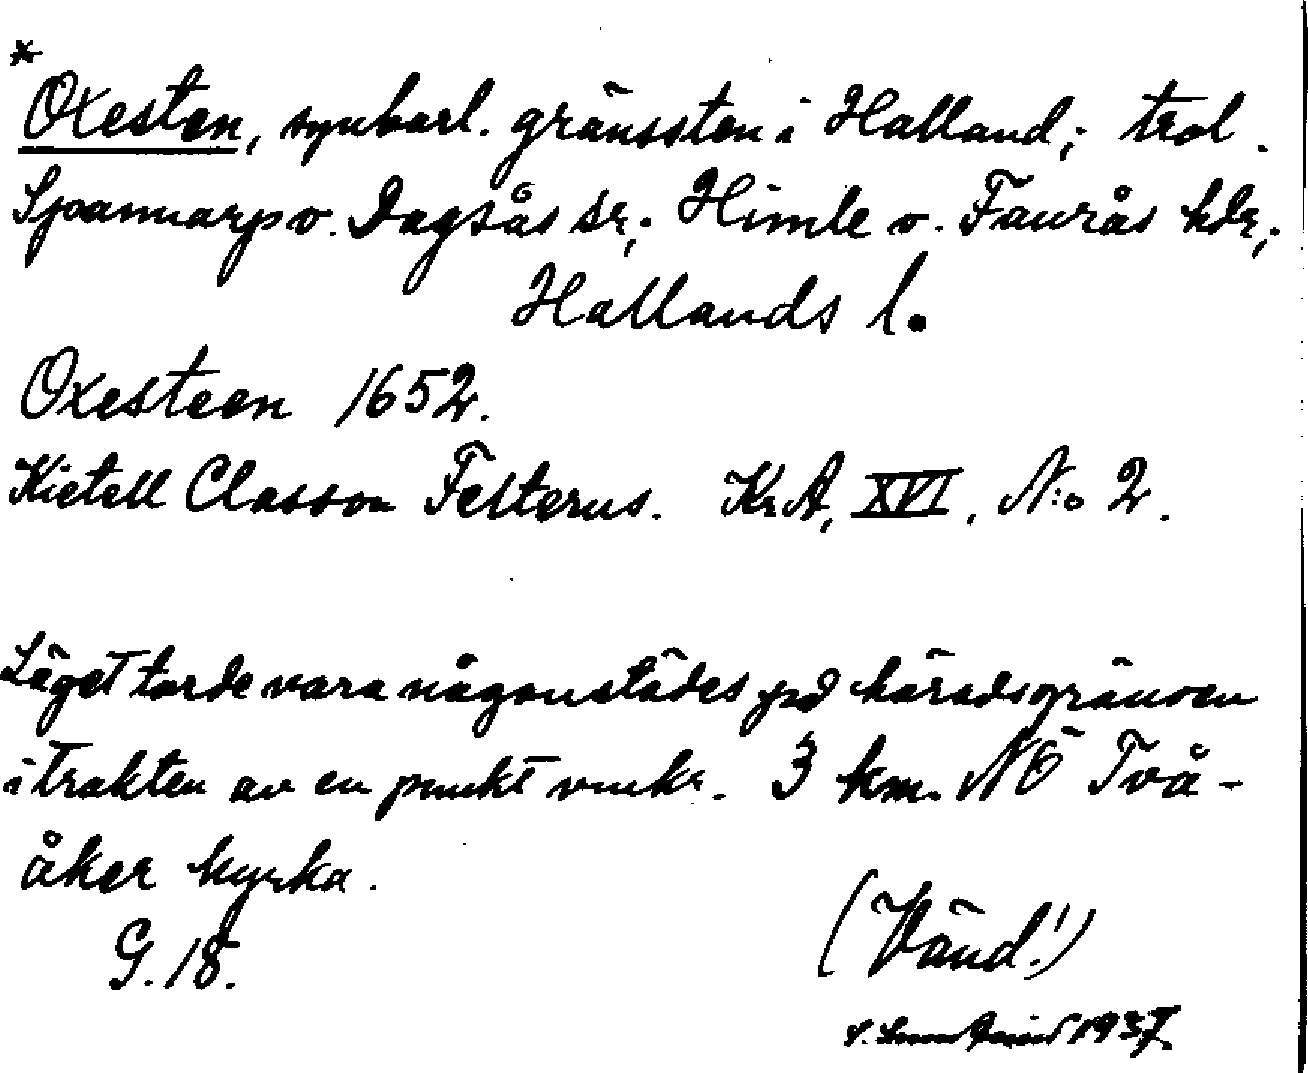 *
Oxesten, synbarl. gränssten i Halland; trol.
Spannarp o. Dagsås sr; Himle o. Faurås hdr;
Hallands l.
Oxesteen 1652.
Kietell Classon Felterus. KrA, XVI, N:o 2.
Läget torde vara någonstädes på häradsgränsen
i trakten av en punkt omkr. 3 km. NÖ Två-
åker kyrka.
G. 18.
(Vänd!)
1937